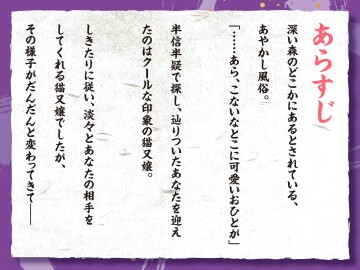 あらすじ
深い森のどこかにあるとされている、
あやかし風俗。
「……あら、こないなとこに可愛いおひとが」
半信半疑で探し、辿りついたあなたを迎え
たのはクールな印象の猫又嬢。
しきたりに従い、淡々とあなたの相手を
してくれる猫又嬢でしたが、
その様子がだんだんと変わってきて――